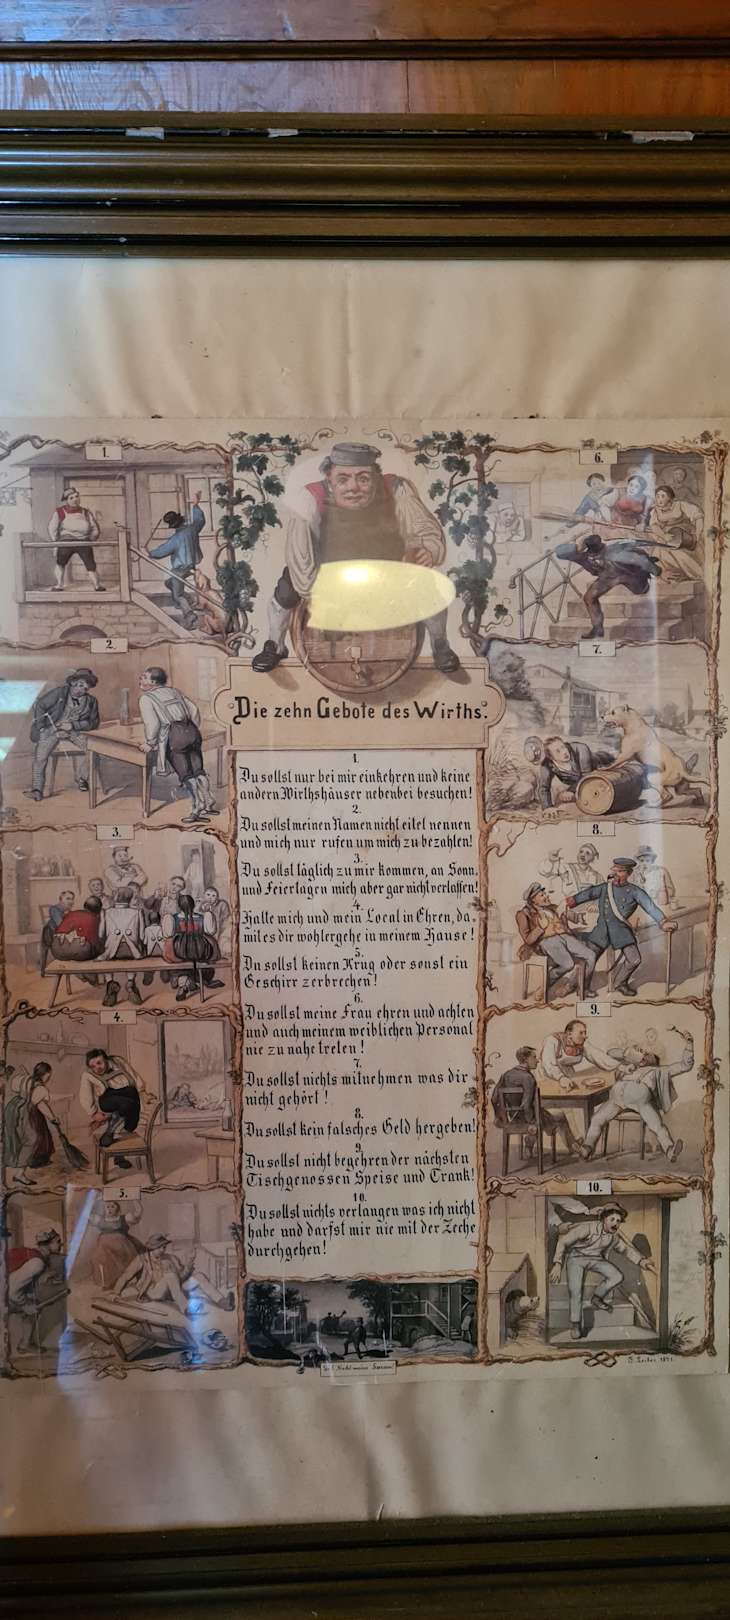 1.
6.
Die zehn Gebote des Wirths.
2.
7.
3.
8.
4.
9.
5.
10.
1.
Du sollst nur bei mir einkehren und keine
andern Wirthshäuser nebenbei besuchen!
2.
Du sollst meinen Namen nicht eitel nennen
und mich nur rufen um mich zu bezahlen!
3.
Du sollst täglich zu mir kommen, an Sonn-
und Feiertagen mich aber gar nicht verlassen!
4.
Halte mich und mein Local in Ehren, da-
mit es dir wohlergehe in meinem Hause!
5.
Du sollst keinen Krug oder sonst ein
Geschirr zerbrechen!
6.
Du sollst meine Frau ehren und achten
und auch meinem weiblichen Personal
nie zu nahe treten!
7.
Du sollst nichts mitnehmen was dir
nicht gehört!
8.
Du sollst kein falsches Geld hergeben!
9.
Du sollst nicht begehren der nächsten
Tischgenossen Speise und Trank!
10.
Du sollst nichts verlangen was ich nicht
habe und darfst mir nie mit der Zeche
durchgehen!